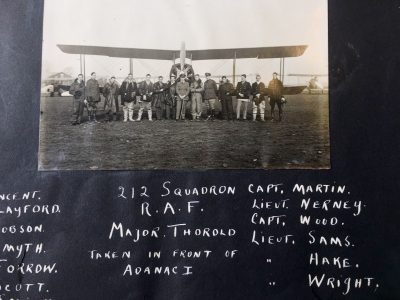 212 SQUADRON
R.A.F.
MAJOR. THOROLD
TAKEN IN FRONT OF
ADANAC I
NCENT.
LAYFORD.
OBSON.
MYTH.
TORROW.
OCOTT.
CAPT. MARTIN.
LIEUT. NERNEY.
CAPT. WOOD.
LIEUT. SAMS.
" HAKE.
" WRIGHT.